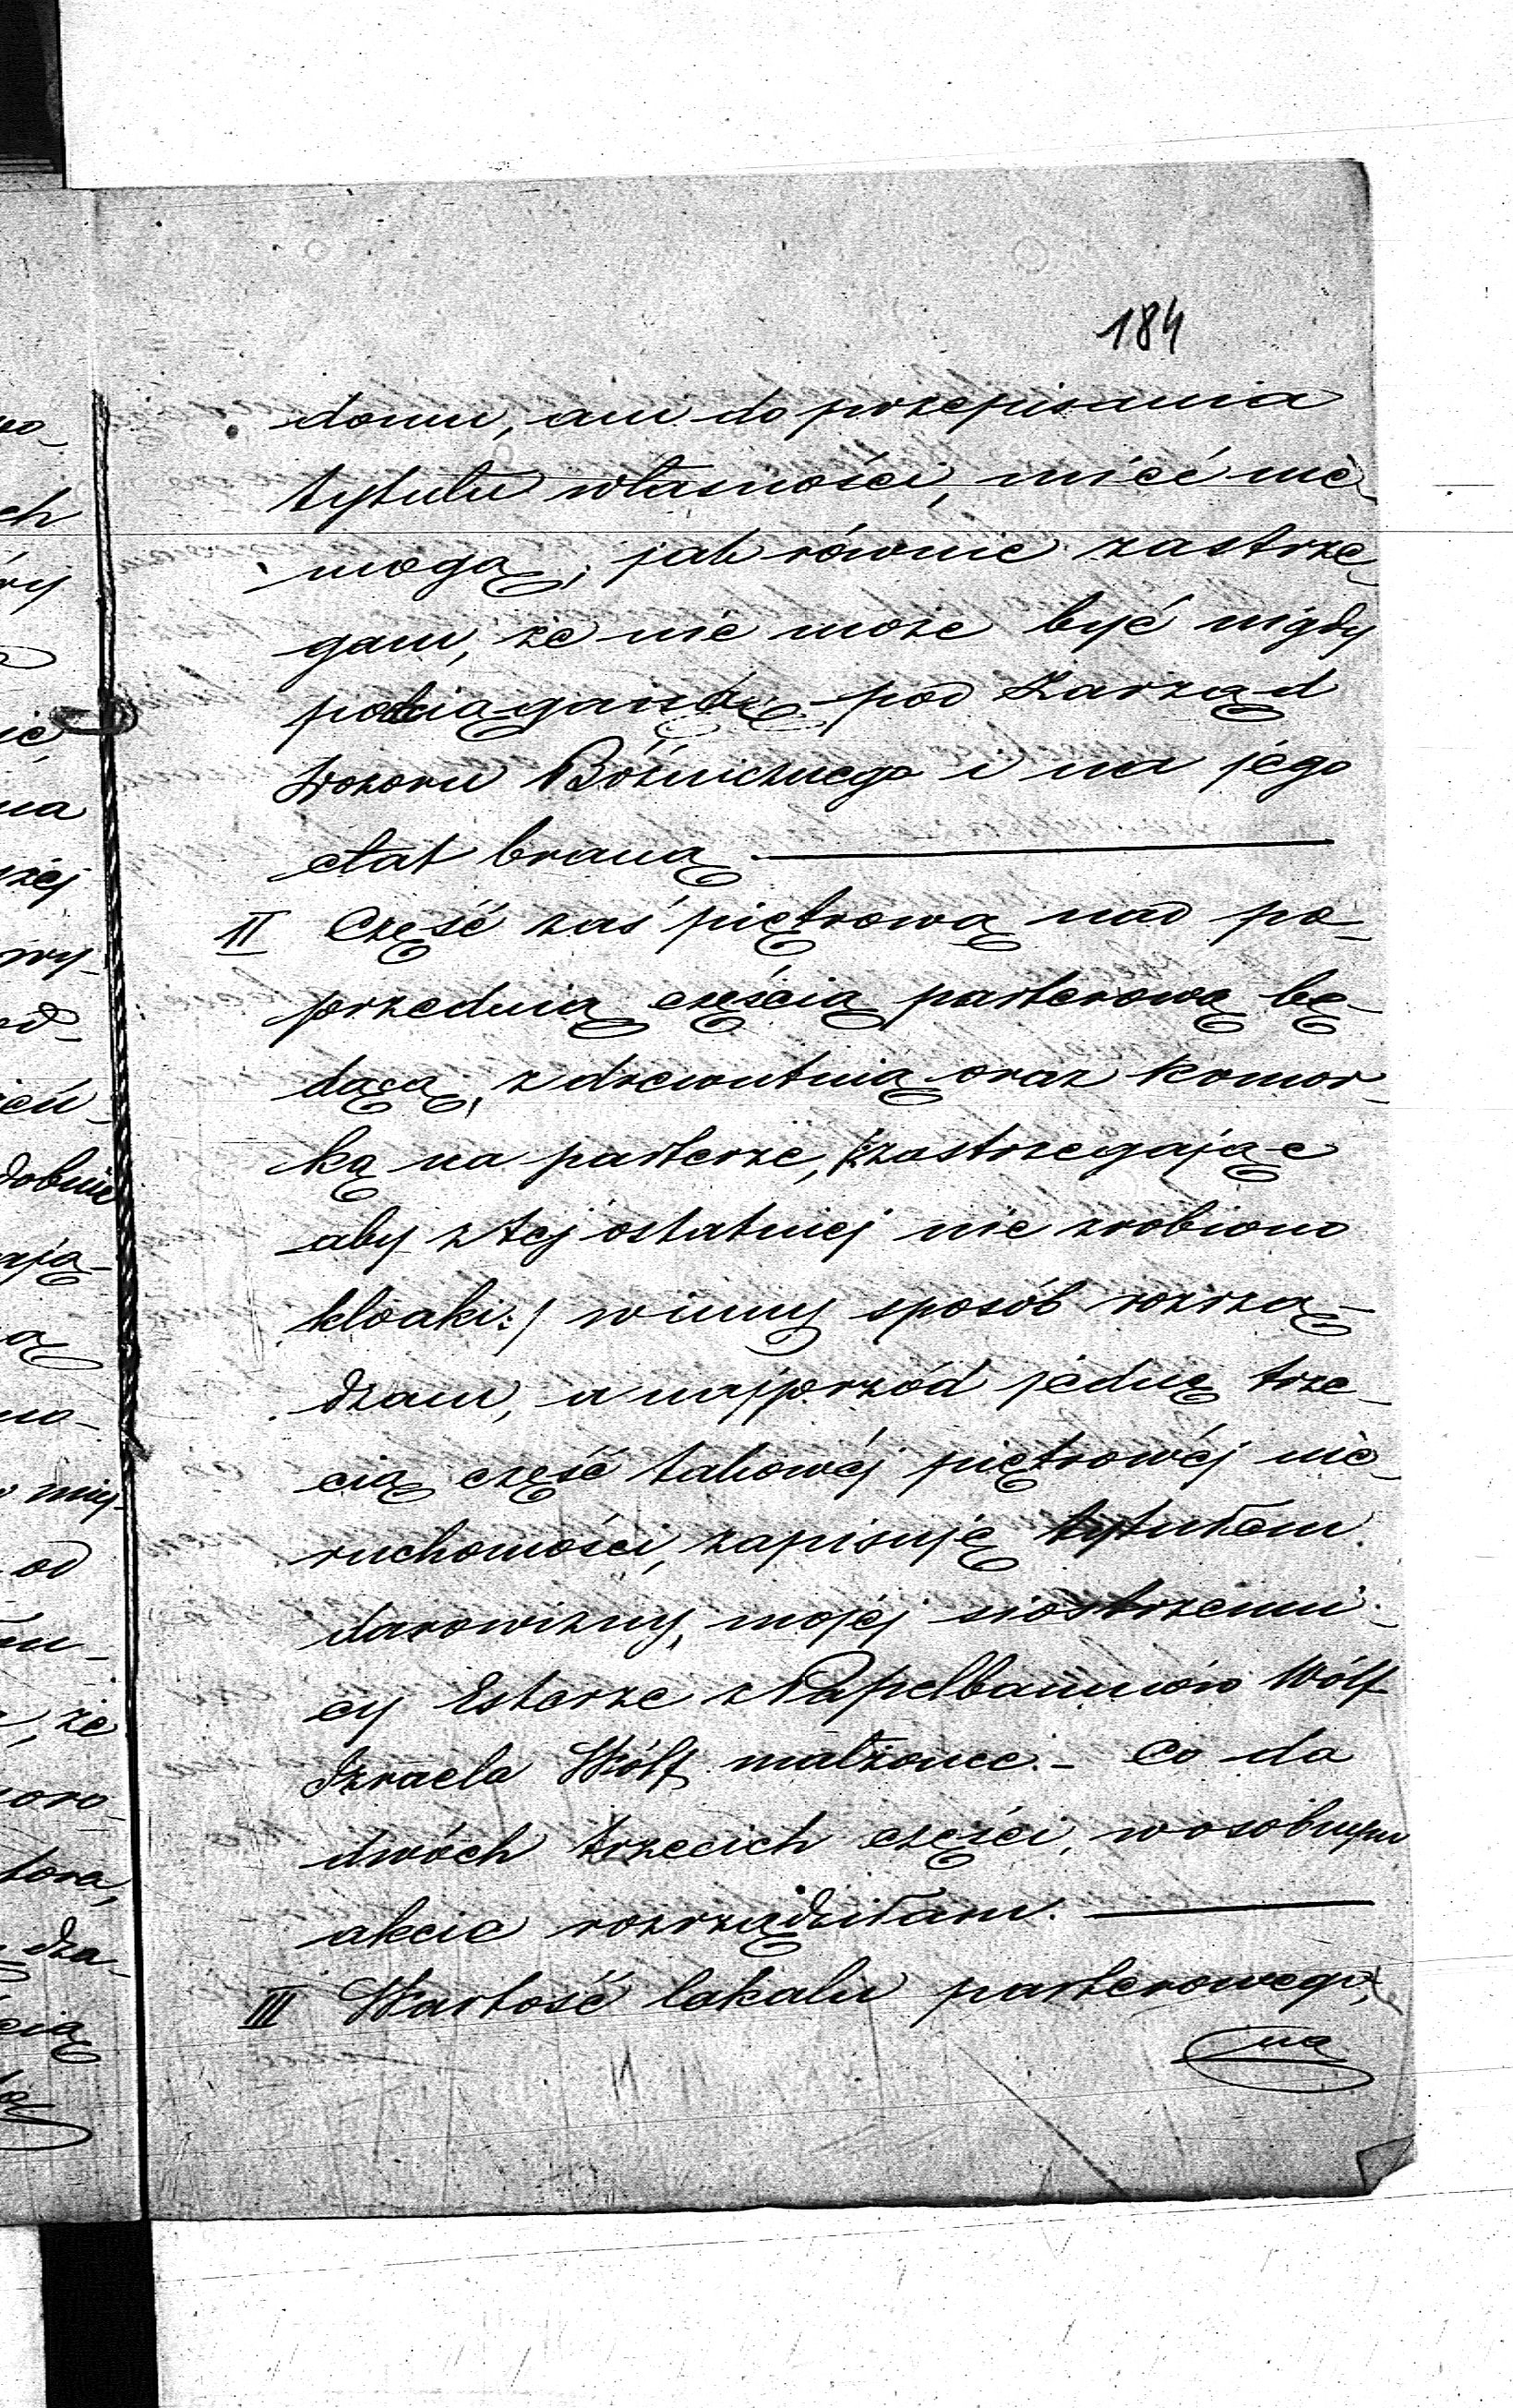 184
domu, ani do przepisania
tytułu własności, mieć nie
mogą; jak równie zastrze
gam, że nie może być nigdy
pociąganą pod Zarząd
Dozoru Bóżnicznego i na jego
etat braną.
II Część zaś piętrową nad po-
przednią częścią parterową bę-
dącą, z drewutnią oraz komor-
ką na parterze, /:zastrzegając
aby z tej ostatniej nie zrobiono
kloaki:/ w inny sposób rozrzą-
dzam, a najprzód jednę trze-
cią część takowéj piętrowéj nie-
ruchomości, zapisuję tytułem
darowizny, mojéj siostrzeni-
cy Esterze z Papelbaumów Wólf
Izraela Wólf małżonce. - Co do
dwóch trzecich części, w osobnym
akcie rozrządziłam.
III Wartość lokalu parterowego,
na
wo-
ch
ry
ie,
na
széj
wy-
od-
ień-
dobnie
ają-
ą
no-
od
że
oro-
tora,
dza-
cią